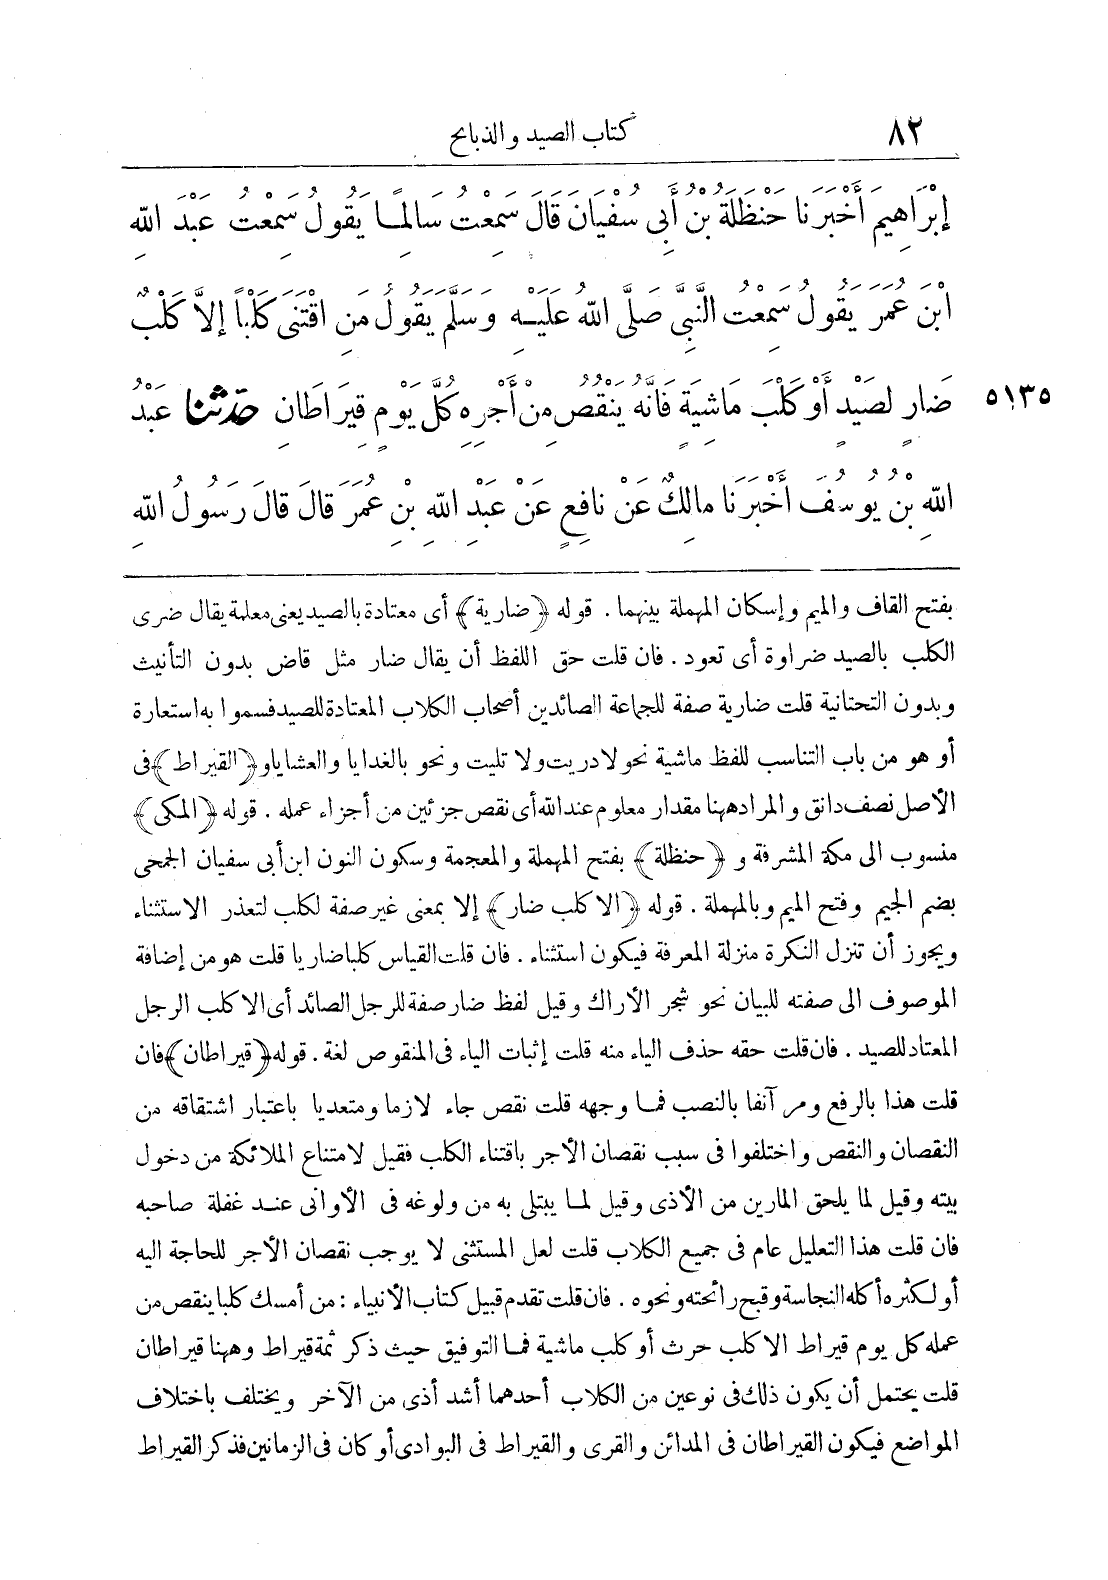 ٨٢ كتاب الصيد والذبايح
إِبْرَاهِيمَ أَخْبَرَنَا حَنْظَلَةُ بْنُ أَبِي سُفْيَانَ قَالَ سَمِعْتُ سَالِمًا يَقُولُ سَمِعْتُ عَبْدَ اللهِ
ابْنَ عُمَرَ يَقُولُ سَمِعْتُ النَّبِيَّ صَلَّى اللهُ عَلَيْهِ وَسَلَّمَ يَقُولُ مَنِ اقْتَنَى كَلْبًا إِلَّا كَلْبٌ
٥١٣٥ ضَارٍ لِصَيْدٍ أَوْ كَلْبَ مَاشِيَةٍ فَانَّهُ يَنْقُصُ مِنْ أَجْرِهِ كُلَّ يَوْمٍ قِيرَاطَانِ حَدَّثَنَا عَبْدُ
اللهِ بْنُ يُوسُفَ أَخْبَرَنَا مَالِكٌ عَنْ نَافِعٍ عَنْ عَبْدِ اللهِ بْنِ عُمَرَ قَالَ قَالَ رَسُولُ اللهِ
بفتح القاف والميم وإسكان المهملة بينهما . قوله ﴿ضارية﴾ أى معتادة بالصيد يعنى معلمة يقال ضرى
الكلب بالصيد ضراوة أى تعود . فان قلت حق اللفظ أن يقال ضار مثل قاض بدون التأنيث
وبدون التحتانية قلت ضارية صفة للجماعة الصائدين أصحاب الكلاب المعتادة للصيد فسموا به استعارة
أو هو من باب التناسب للفظ ماشية نحو لا دريت ولا تليت ونحو بالغدايا والعشايا و﴿القيراط﴾ فى
الأصل نصف دانق والمراد ههنا مقدار معلوم عند الله أى نقص جزئين من أجزاء عمله . قوله ﴿المكى﴾
منسوب الى مكة المشرفة و﴿حنظلة﴾ بفتح المهملة والمعجمة وسكون النون ابن أبى سفيان الجمحى
بضم الجيم وفتح الميم وبالمهملة . قوله ﴿الا كلب ضار﴾ إلا بمعنى غير صفة لكلب لتعذر الاستثناء
ويجوز أن تنزل النكرة منزلة المعرفة فيكون استثناء . فان قلت القياس كلبا ضاريا قلت هو من إضافة
الموصوف الى صفته للبيان نحو شجر الأراك وقيل لفظ ضار صفة للرجل الصائد أى الا كلب الرجل
المعتاد للصيد . فان قلت حقه حذف الياء منه قلت إثبات الياء فى المنقوص لغة . قوله ﴿قيراطان﴾ فان
قلت هذا بالرفع ومر آنفا بالنصب فما وجهه قلت نقص جاء لازما ومتعديا باعتبار اشتقاقه من
النقصان والنقص واختلفوا فى سبب نقصان الأجر باقتناء الكلب فقيل لامتناع الملائكة من دخول
بيته وقيل لما يلحق المارين من الأذى وقيل لما يبتلى به من ولوغه فى الأوانى عند غفلة صاحبه
فان قلت هذا التعليل عام فى جميع الكلاب قلت لعل المستثنى لا يوجب نقصان الأجر للحاجة اليه
أو لكثره أكله النجاسة وقبح رائحته ونحوه . فان قلت تقدم قبيل كتاب الأنبياء : من أمسك كلبا ينقص من
عمله كل يوم قيراط الا كلب حرث أو كلب ماشية فما التوفيق حيث ذكر ثمة قيراط وههنا قيراطان
قلت يحتمل أن يكون ذلك فى نوعين من الكلاب أحدهما أشد أذى من الآخر ويختلف باختلاف
المواضع فيكون القيراطان فى المدائن والقرى والقيراط فى البوادى أو كان فى الزمانين فذكر القيراط